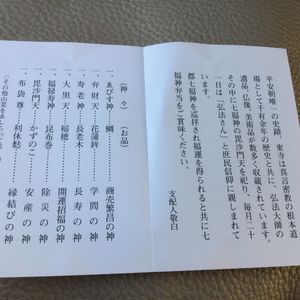 平安朝唯一の史蹟、東寺は真言密教の根本道
場として千有余年の歴史と共に、弘法大師の
遺品、仏像、美術品が数多く収蔵されています。
その中に七福神の毘沙門天を祀り、毎月二十
一日は「弘法さん」と庶民信仰に親しまれて
います。
都七福神を巡拝され福運を得られると共に七
福神弁当をご賞味ください。
支配人敬白
(神々) (お品)
一、ゑびす神 鯛 商売繁昌の神
一、弁財天 花蒲鉾 学問の神
一、寿老神 長老木 長寿の神
一、大黒天 稲穂 開運招福の神
一、福禄寿神 昆布巻 除災の神
一、毘沙門天 かずのこ 安産の神
一、布袋尊 利休麩 縁結びの神